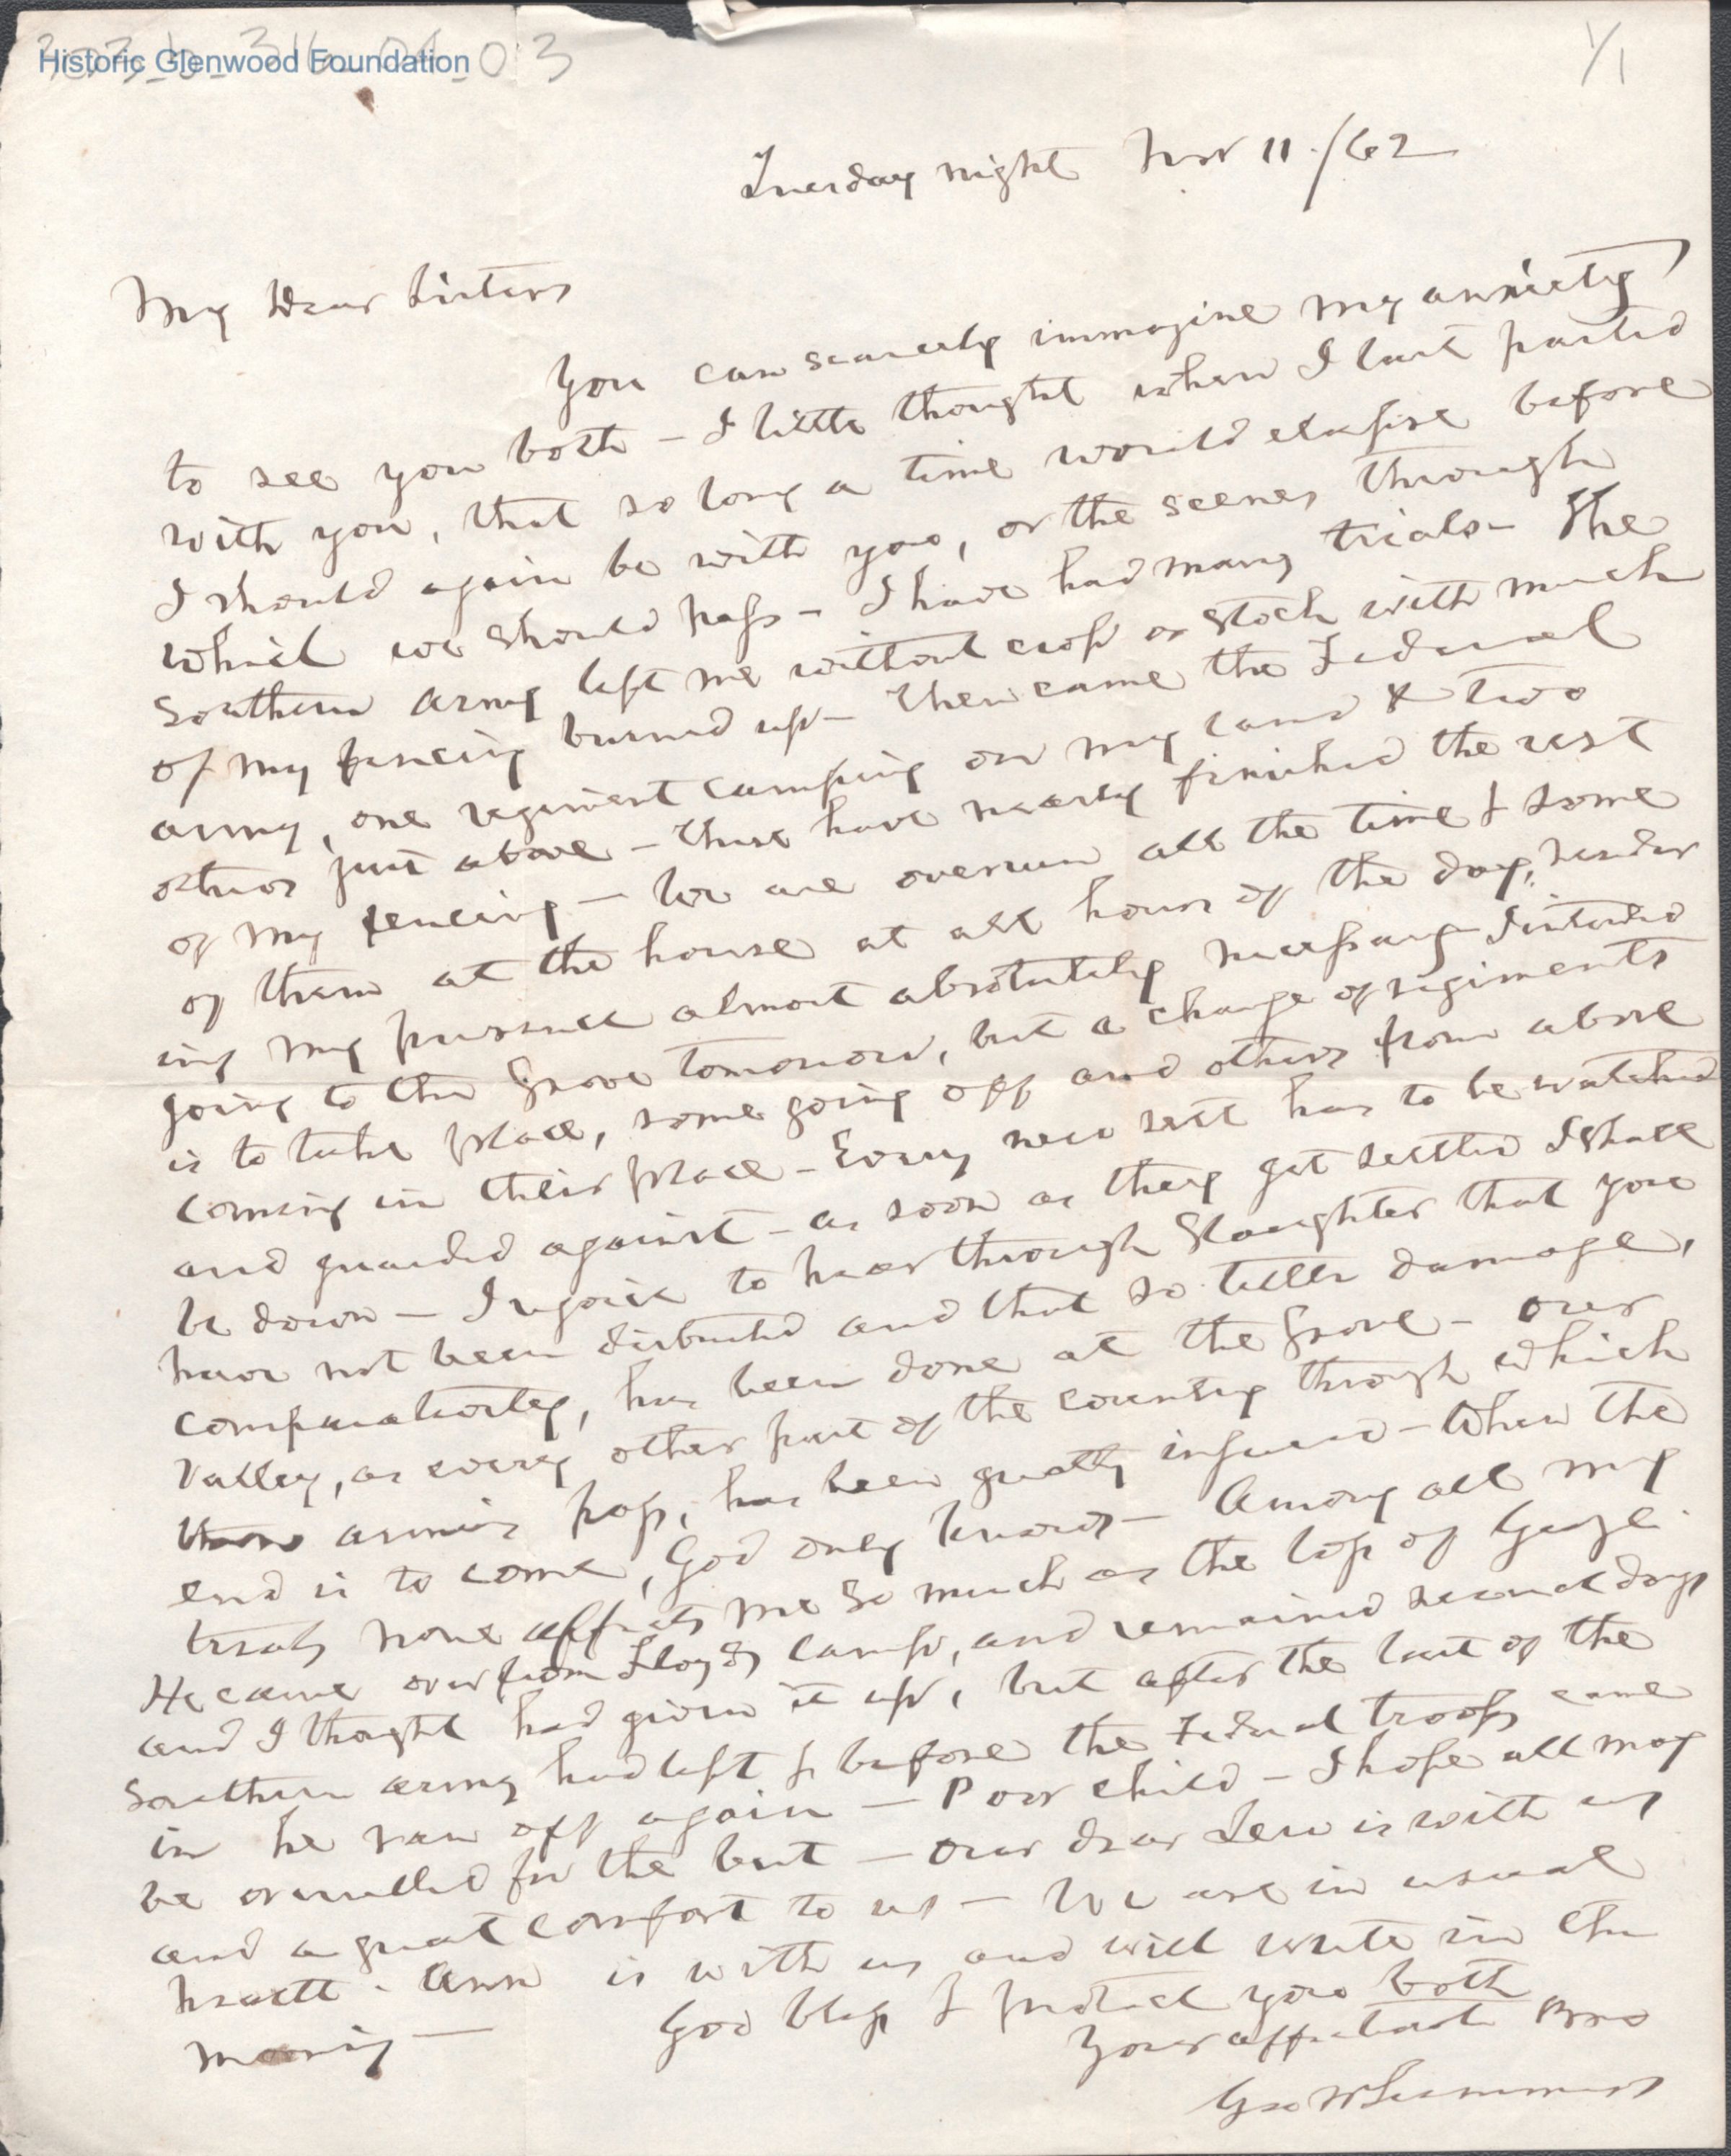 Historic Glenwood Foundation
03
1/1
Tuesday night Nov 11./62
My Dear Sisters
You can scarcely immagine my anxiety
to see you both – I little thought when I last parted
with you, that so long a time would elapse before
I should again be with you, or the scenes through
which we should pass – I have had many trials – The
Southern army left me without crop or stock with much
of my fencing burned up – Then came the Federal
army, one regiment camping on my land & two
others just above – These have nearly finished the rest
of my fencing – We are overrun all the time & some
of them at the house at all hours of the day, render
ing my presence almost absolutely necessary – I intended
going to the Grove tomorrow, but a change of regiments
is to take place, some going off and others from above
coming in their place – Every new sett has to be watched
and guarded against – as soon as they get settled I shall
be down – I rejoice to hear through Slaughter that you
have not been disturbed and that so little damage,
comparatively, has been done at the Grove – Our
Valley, as every other part of the country through which
armies pass, has been greatly injured – When the
end is to come, God only knows – Among all my
trials none afflicts me so much as the loss of George.
He came over from Floyds camp, and remained several days
and I thought had given it up, but after the last of the
Southern army had left & before the Federal troops came
in he ran off again – Poor child – I hope all may
be overruled for the best – Our dear Lew is with us
and a great comfort to us – We are in usual
health. Ann is with us and will write in the
morning –
God bless & protect you both
Your affectionate Bro
Geo W Summers